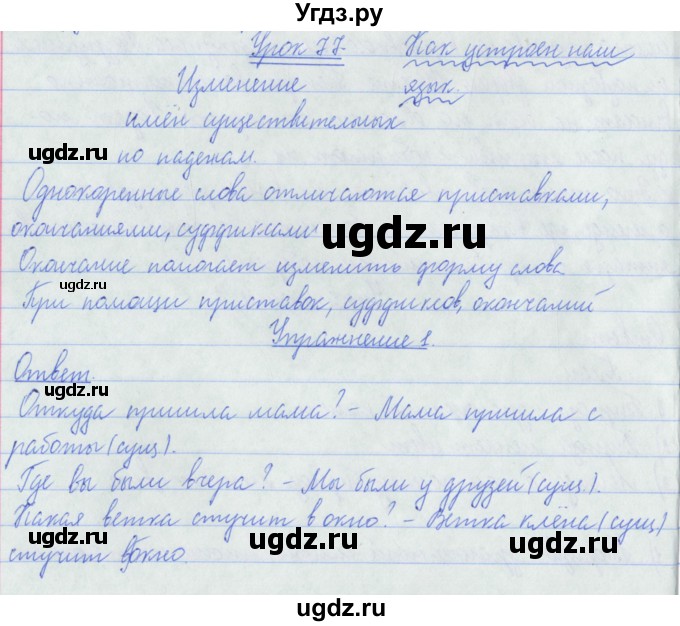 Угдз.ру
Урок 77. Как устроен наш
Изменение язык.
имён существительных
ugdz.ru по падежам. ugdz.ru
Однокоренные слова отличаются приставками,
окончаниями, суффиксами ugdz.ru
Окончание помогает изменить форму слова.
ugdz.ru
При помощи приставок, суффиксов, окончаний
Упражнение 1.
Ответ.
ugdz.ru ugdz.ru
Откуда пришла мама? – Мама пришла с
работы (сущ.).
Где вы были вчера? – Мы были у друзей (сущ.).
Какая ветка стучит в окно? – Ветка клёна (сущ)
стучит в окно. ugdz.ru ugdz.ru
ugdz.ru